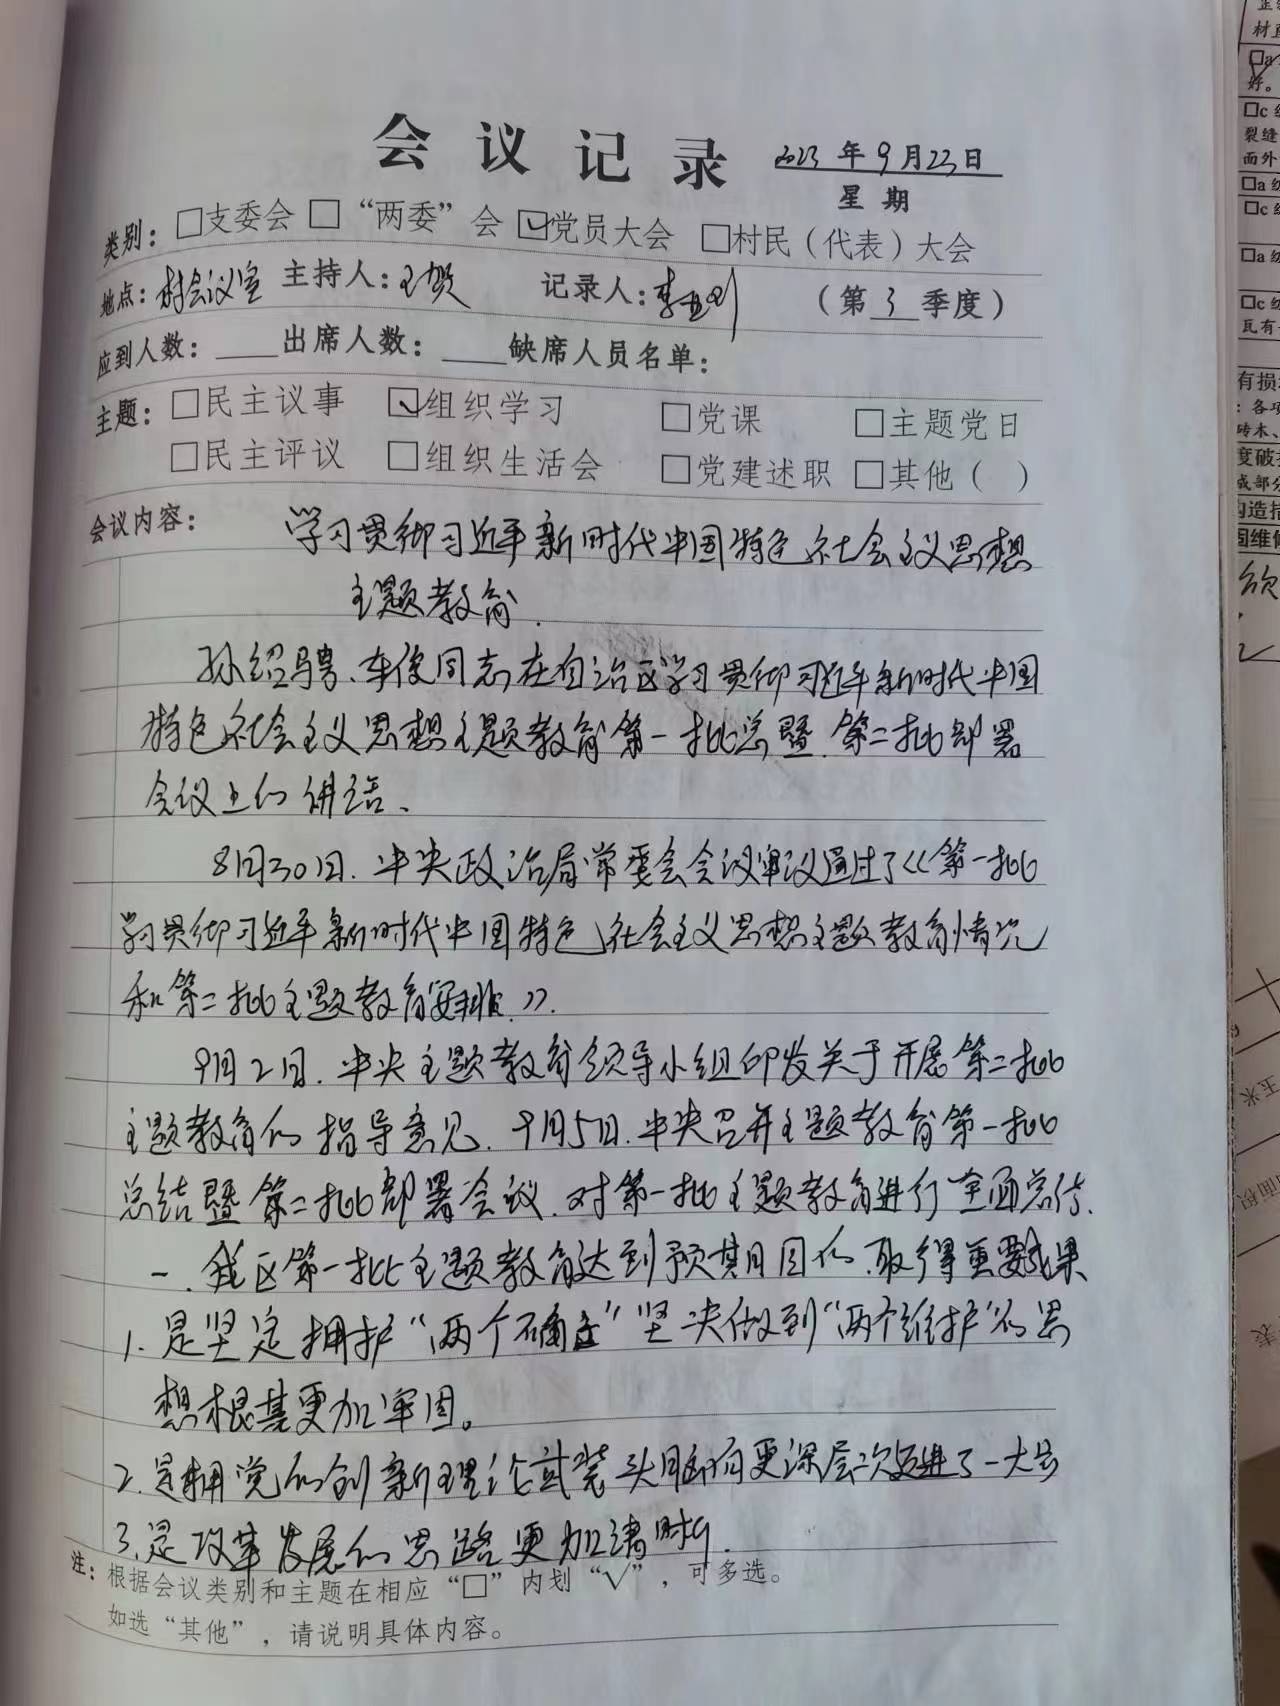 会议记录 2023年9月23日
星期
类别：□支委会 □“两委”会 ☑党员大会 □村民（代表）大会
地点：村会议室 主持人：王贺 记录人：李亚 （第3季度）
应到人数：____出席人数：____缺席人员名单：
主题：□民主议事 ☑组织学习 □党课 □主题党日
□民主评议 □组织生活会 □党建述职 □其他（ ）
会议内容： 学习贯彻习近平新时代中国特色社会主义思想
主题教育.
孙绍骋、车俊同志在自治区学习贯彻习近平新时代中国
特色社会主义思想主题教育第一批总暨.第二批部署
会议上的讲话、
8月30日.中央政治局常委会会议审议通过了《第一批
学习贯彻习近平新时代中国特色社会主义思想主题教育情况
和第二批主题教育安排.》.
9月2日.中央主题教育领导小组印发关于开展第二批
主题教育的指导意见.9月5日.中央召开主题教育第一批
总结暨第二批部署会议.对第一批主题教育进行全面总结.
一.我区第一批主题教育达到预其月目的.取得重要成果
1.是坚定拥护“两个确立”坚决做到“两个维护”的思
想根基更加牢固。
2.是用党的创新理论武装头脑向更深层次迈进了一大步
3.是改革发展的思路更加清晰.
注：根据会议类别和主题在相应“□”内划“√”，可多选。
如选“其他”，请说明具体内容。
材
好。
□c
裂缝
面外
□a级
□c
□a级
□c级
瓦有
有损
：各项
砖木、
度破
成部分
构造措
固维修
玉米
面积
表